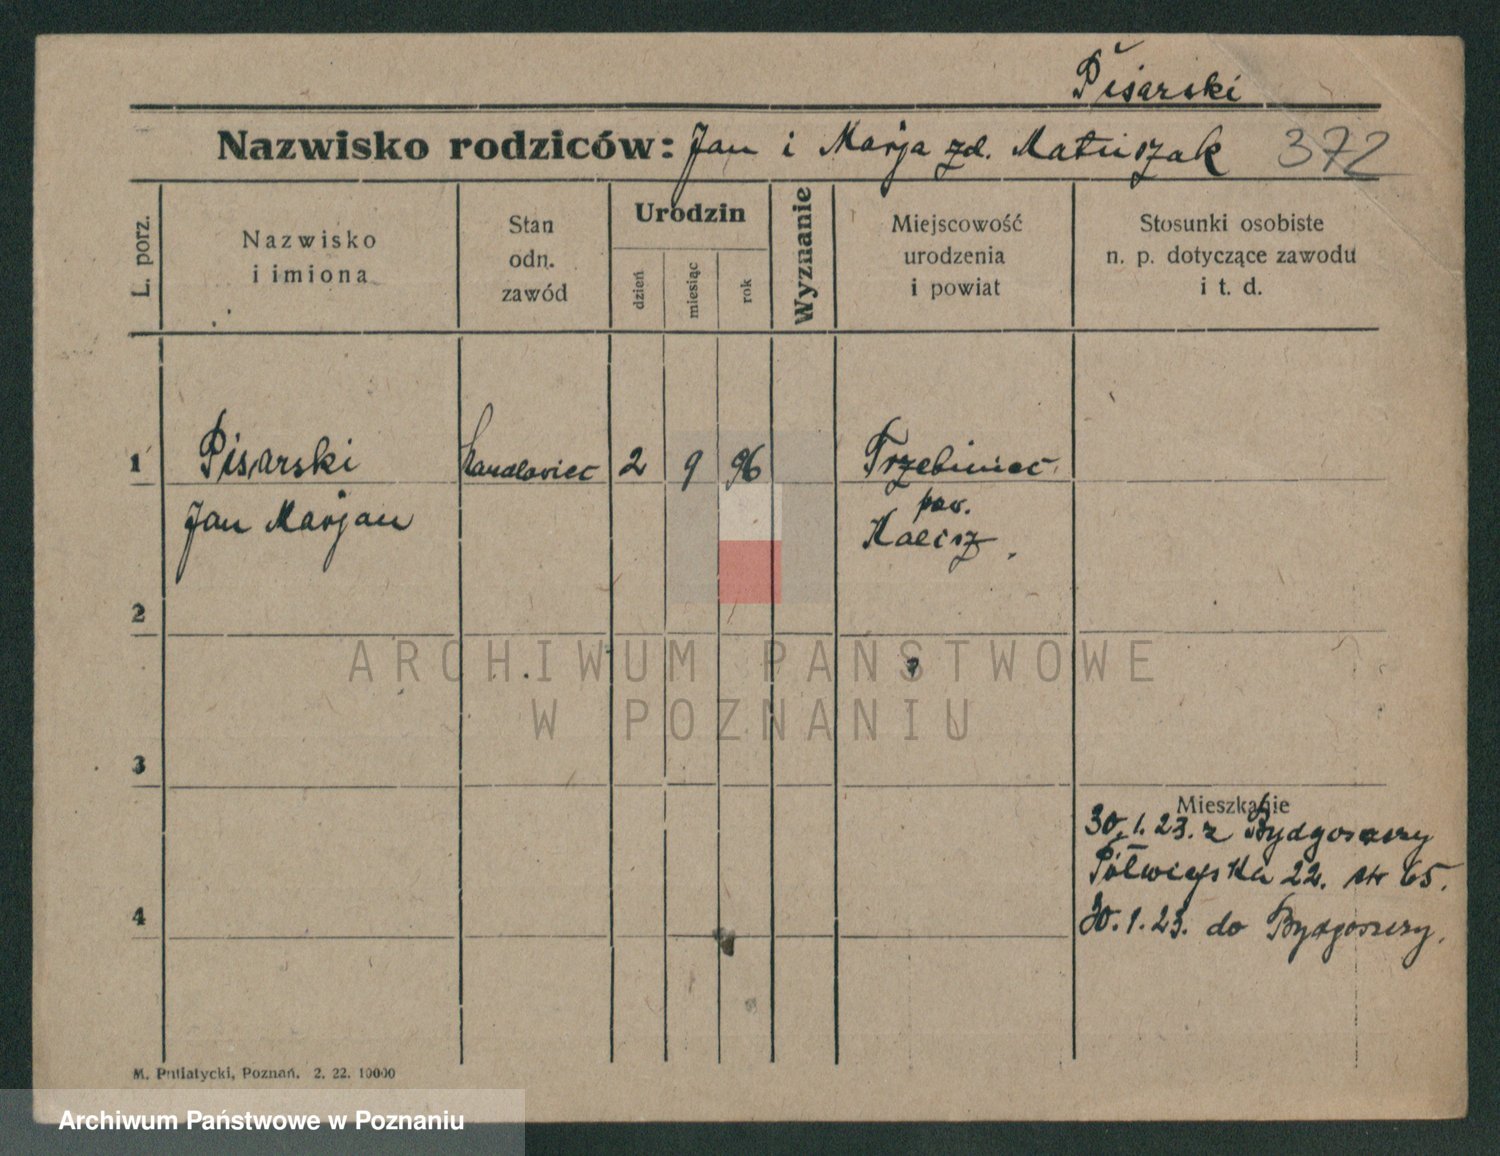 Pisarski
Nazwisko rodziców: Jan i Marja zd. Matuszak 372
L. porz.
Nazwisko
i imiona
Stan
odn.
zawód
Urodzin
dzień
miesiąc
rok
Wyznanie
Miejscowość
urodzenia
i powiat
Stosunki osobiste
n. p. dotyczące zawodu
i t. d.
1 Pisarski 2 9 96
Jan Marjan pow.
Kalisz
2
3
4
Mieszkanie
30.1.23. z Bydgoszczy
Półwiejska 22. str 65.
30.1.23. do Bydgoszczy.
M. Putiatycki, Poznań. 2. 22. 10000
ARCHIWUM PAŃSTWOWE
W POZNANIU
Archiwum Państwowe w Poznaniu